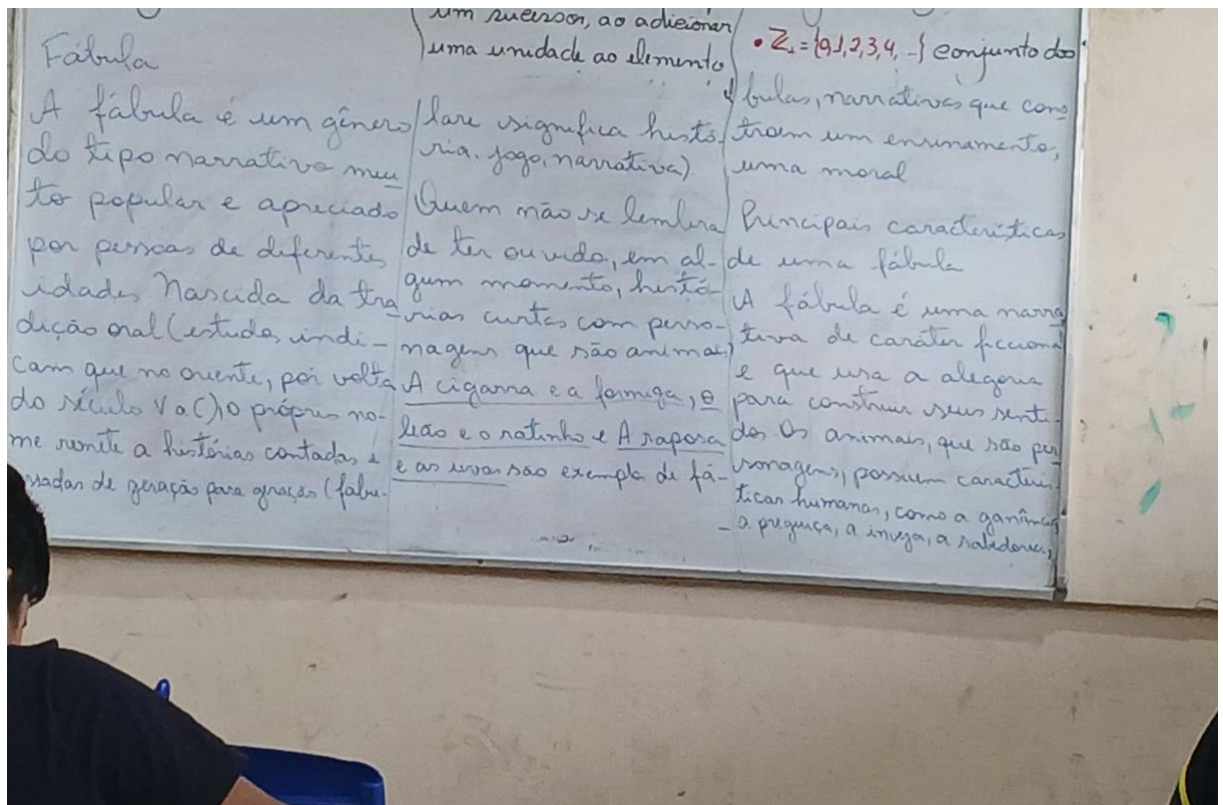 um sucessor, ao adicionar
uma unidade ao elemento
• Z₊ = {0,1,2,3,4, ...} conjunto dos
Fábula
A fábula é um gênero
do tipo narrativo mui
to popular e apreciado
por pessoas de diferentes
idades, Nascida da tra
dição oral (estudos indi-
cam que no oriente, por volta
do século V a C), o próprio no-
me remete a histórias contadas e
passadas de geração para geração (fabu-
lare significa histó-
ria, jogo, narrativa)
Quem não se lembra
de ter ouvido, em al-
gum momento, histó-
rias curtas com perso-
nagens que são animais
A cigarra e a formiga, o
leão e o ratinho e A raposa
e as uvas são exemplo de fá-
bulas, narrativas que cons
troem um ensinamento,
uma moral
Principais características
de uma fábula
A fábula é uma narra
tiva de caráter ficcional
e que usa a alegoria
para construir seus senti
dos Os animais, que são per
sonagens, possuem caracterís
ticas humanas, como a ganância
a preguiça, a inveja, a sabedoria,